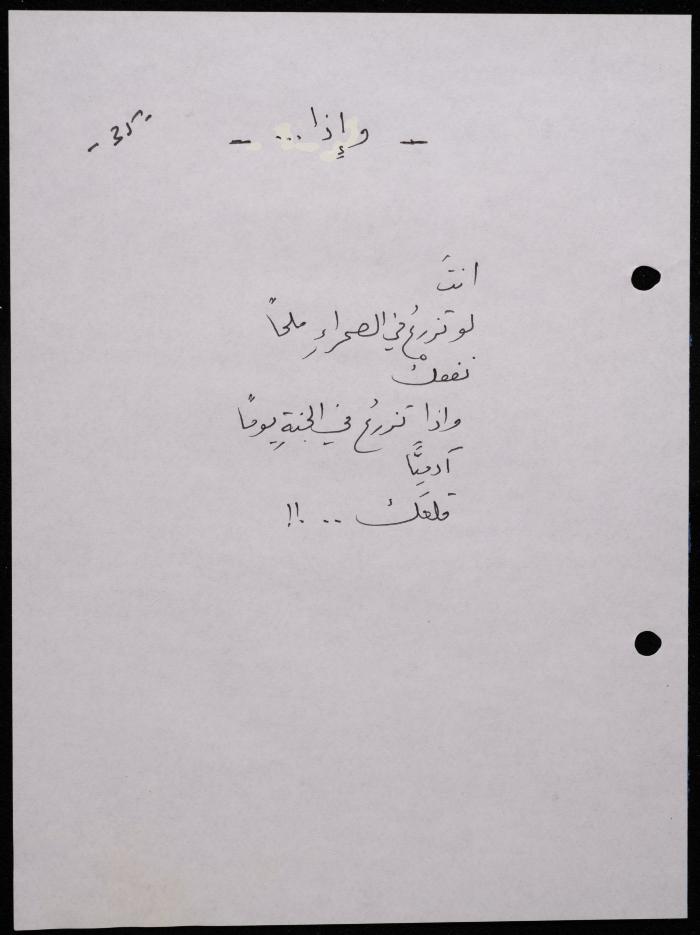 - 35 -
- وإذا... -
انتَ
لو تزرعُ في الصحراءِ ملحاً
نفعكْ
واذا تزرعُ في الجنةِ يومًا
آدميًّا
قلعَكْ .. !!